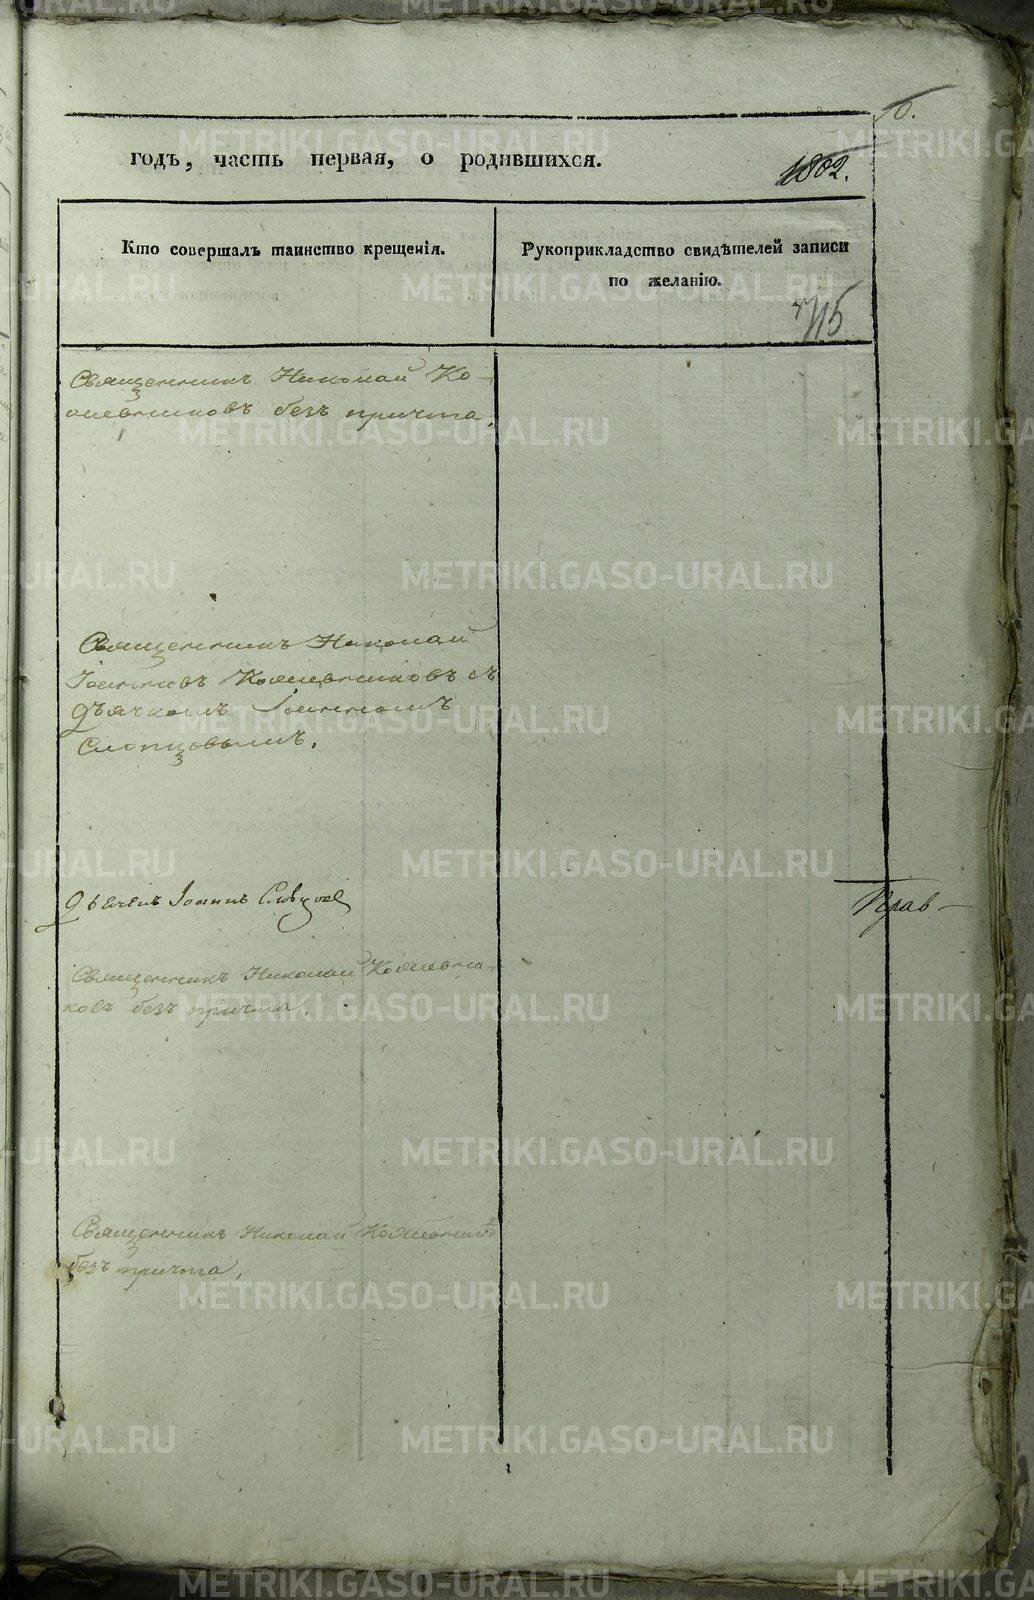 10.
годъ, часть первая, о родившихся.
1802.
Кто совершалъ таинство крещенія.
Рукоприкладство свидѣтелей записи
по желанію.
715
Священникъ Николай Ко-
жевниковъ безъ причта.
Священникъ Николай
Іоанновъ Кожевниковъ съ
дьячкомъ Іоанномъ
Слопцовымъ.
Дьячекъ Іоаннъ
Прав-
Священникъ Николай Кожевни-
ковъ безъ причта.
Священникъ Николай Кожевниковъ
безъ причта.
METRIKI.GASO-URAL.RU